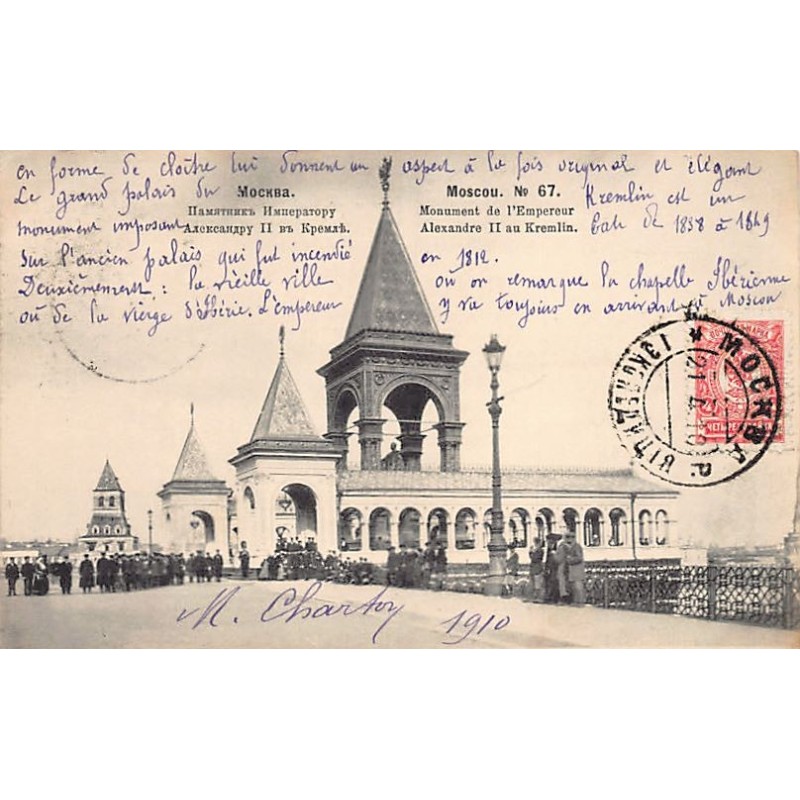 en forme de cloître lui donnent un aspect à la fois original et élégant
Le grand palais du Kremlin est un
monument imposant bati de 1838 à 1849
sur l'ancien palais qui fut incendié en 1812.
Deuxièmement : la vieille ville où on remarque la chapelle Ibérienne
ou de la vierge d'Ibérie. L'empereur y va toujours en arrivant à Moscou
Москва.
Памятникъ Императору
Александру II въ Кремлѣ.
Moscou. № 67.
Monument de l'Empereur
Alexandre II au Kremlin.
МОСКВА
M. Chartoy 1910